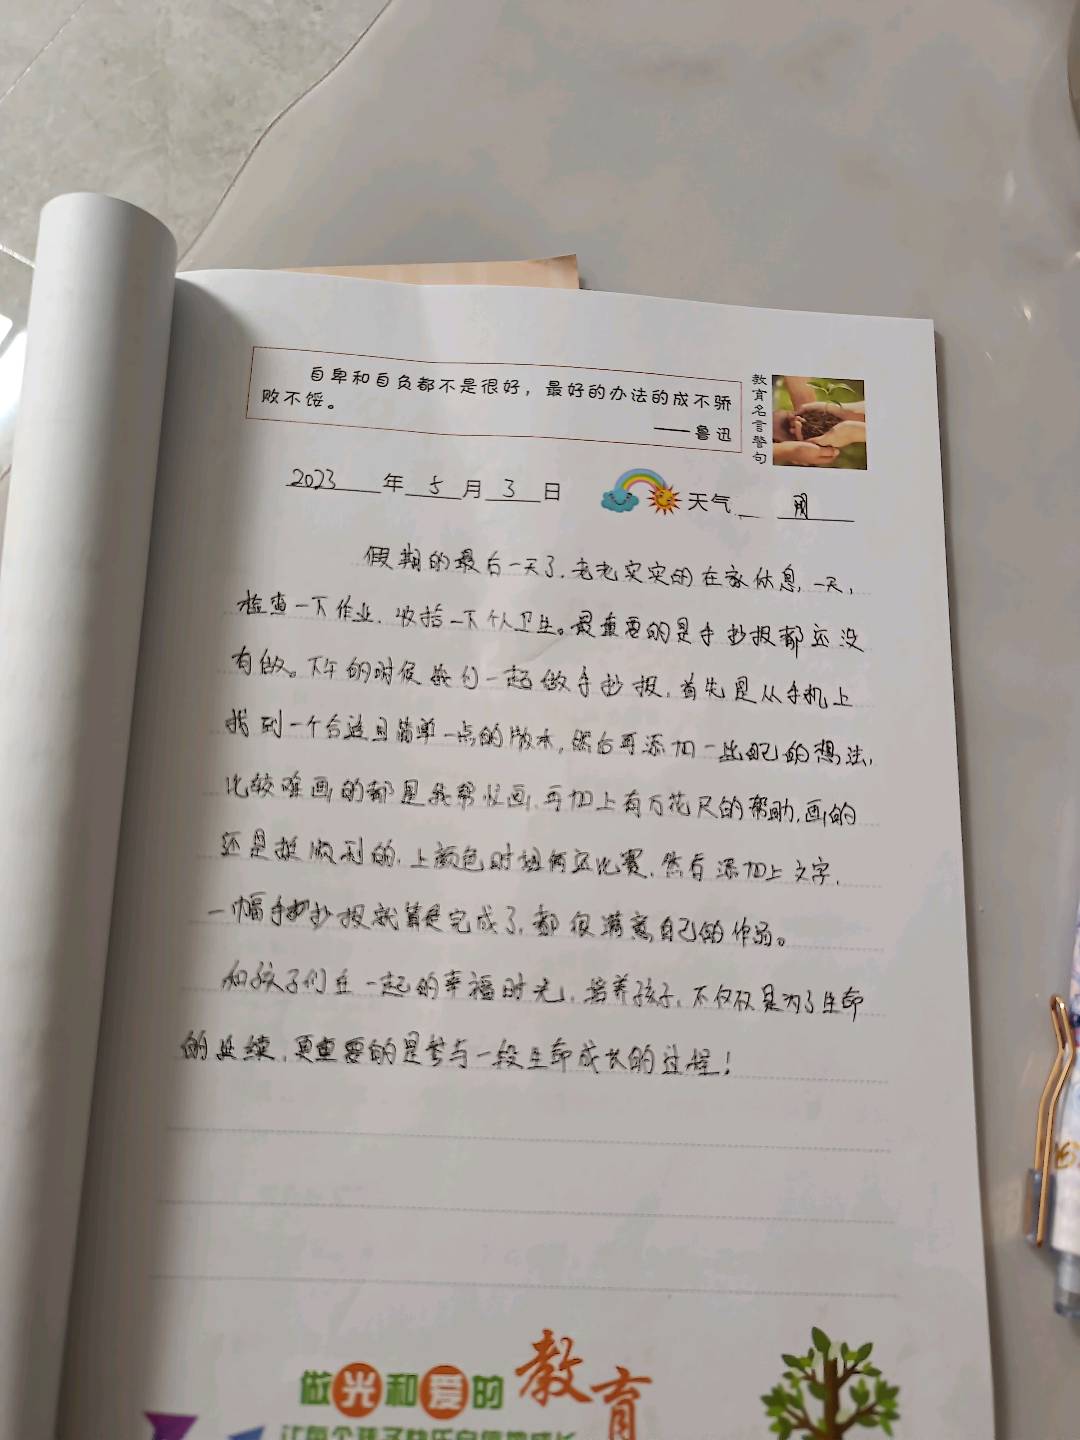 自卑和自负都不是很好，最好的办法的成不骄
败不馁。
——鲁迅
教育名言警句
2023年5月3日 天气
假期的最后一天了.老老实实的在家休息,一天,
检查一下作业.收拾一下个人卫生。最重要的是手抄报都还没
有做。下午的时候我们一起做手抄报,首先是从手机上
找到一个合适且简单一点的版本,然后再添加一些自己的想法,
比较难画的都是我帮忙画,再加上有万花尺的帮助,画的
还是挺顺利的.上颜色时 比赛.然后添加上文字.
一幅手抄报就算是完成了,都很满意自己的作品。
和孩子们在一起的幸福时光,培养孩子,不仅仅是为了生命
的延续,更重要的是参与一段生命成长的过程!
做光和爱的教育
让每个孩子快乐自信地成长